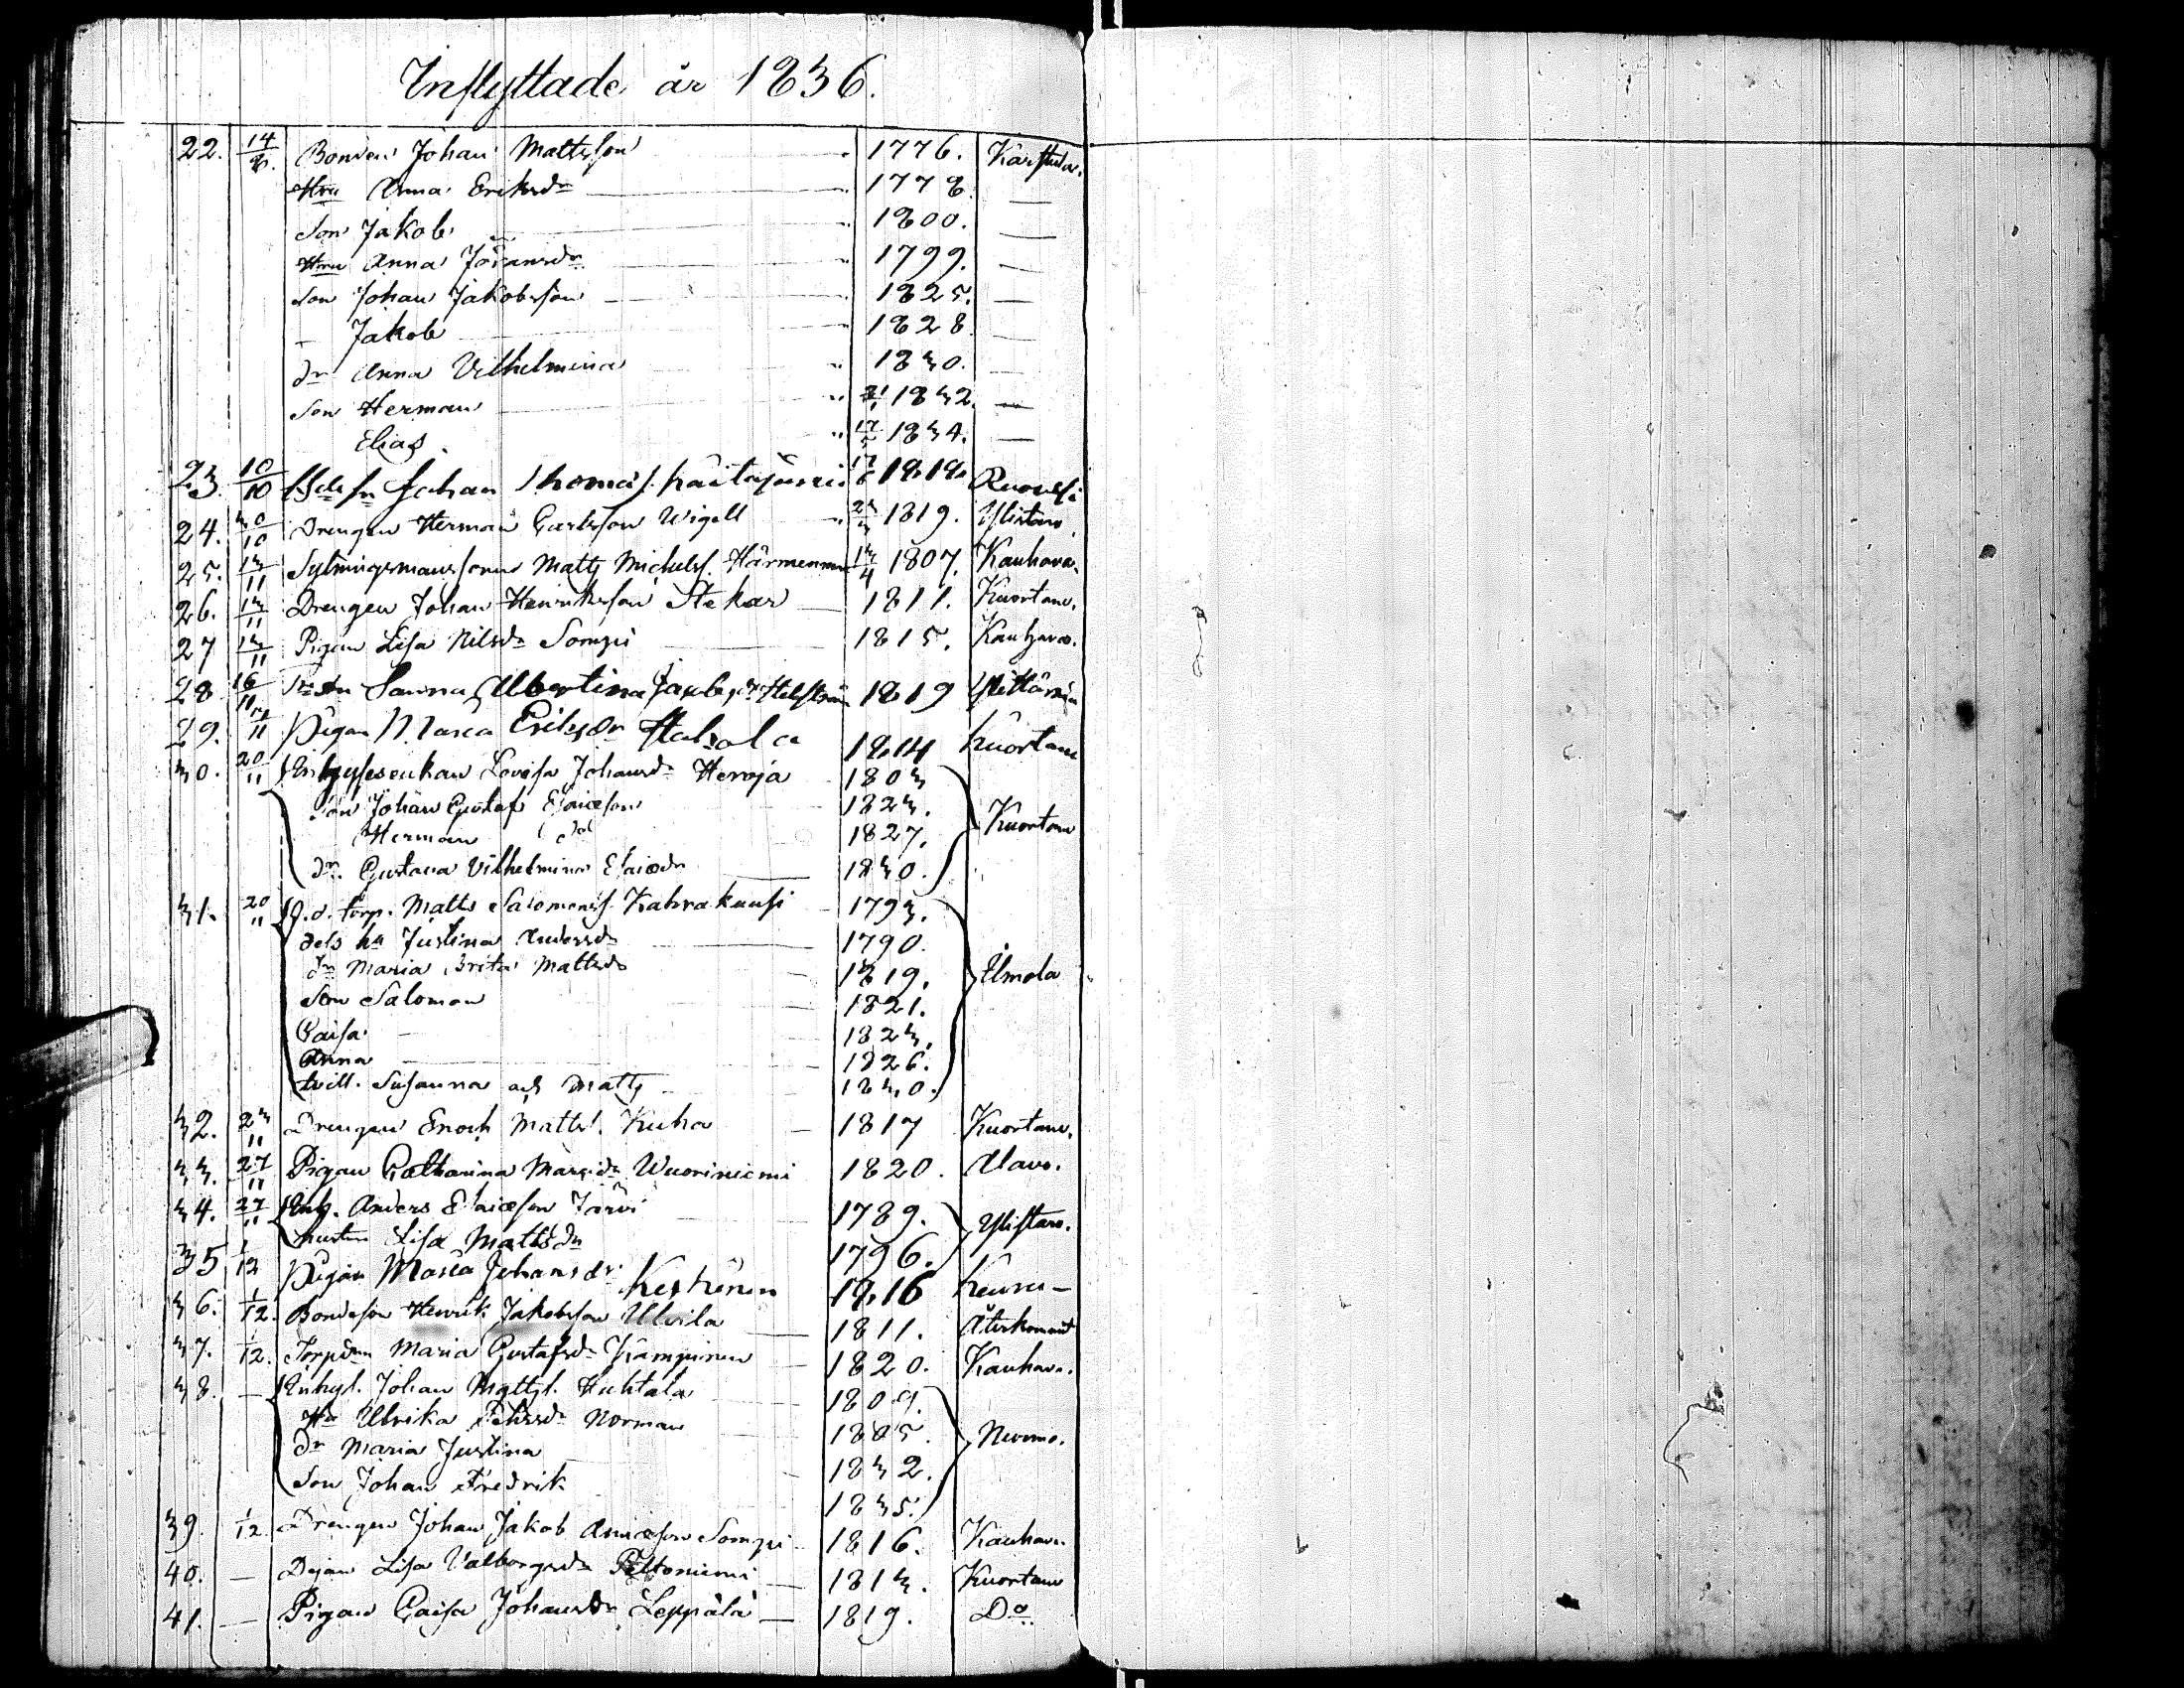 Inflyttade år 1836.
22. 14/8. Bonden Johan Mattsson 1776. Karstula.
Hru Anna Eriksdr 1778
Son Jakob 1800.
Hru Anna Göransdr 1799.
Son Johan Jakobsson 1825.
- Jakob 1828
dr Anna Vilhelmina 1830.
Son Herman 1832.
Elias 17/5 1834.
23. 10/10 Johan Thomas. 17/6 1818 Ruovesi
24. 30/10 Drengen Herman Carlsson Wigell 23/3 1819. Ylistaro
25. 13/11 Sytningsmanssonen Matts Michelss. 13/4 1807. Kauhava.
26. 13/11 Drengen Johan Henriksson Stekar 1811. Kuortane.
27 13/11 Pigan Lisa Nilsdr Sompi 1815. Kauhava.
28. 16/11 Sanna Albertina 1819
29. 17/11 Pigan Maria Eriksdr 1814 Kuortane
30. 20/11 Lovisa Johansdr Heroja 1803
Son Johan Gustaf Esaiæson 1823. Kuortane
Herman do 1827.
dr. Gustava Vilhelmina Esaiædr 1830.
31. 20/11 f.d. torp. Matts Salomonss. Kahrakuusi 1793.
dess hu Justina Andersdr 1790.
dr Maria Brita Mattsdr 1819. Ilmola
Son Salomon 1821.
Caisa 1823.
Anna 1826.
tvill. Susanna och Matts 1830.
32. 23/11 Drengen Enoch Matts. Kuha 1817 Kuortane.
33. 27/11 Pigan Catharina Wuoriniemi 1820. Alavo.
34. 27/11 Inh. Anders Esaiæson Järvi 1789. Ylistaro.
hustrun Lisa Mattsdr 1796.
35 1/12 Pigan Maria Johansdr. Keskinen 1816 Keuru-
36. 1/12. Bondeson Henrik Jakobsson Ulvila 1811. Återkommit
37. 1/12. Torpdrn Maria Gustafsdr Kamppinen 1820. Kauhava.
38. - Inhys. Johan Mattss. Huhtala 1809.
Hu Ulrika Norman 1805. Nurmo.
dr Maria Justina 1832.
Son Johan Fredrik 1835.
39. 1/12 Drengen Johan Jakob Sompi 1816. Kauhava.
40. - Dejan Lisa Valborgsdr Peltoniemi 1813. Kuortane
41. - Pigan Caisa Johansdr Leppälä 1819. Do